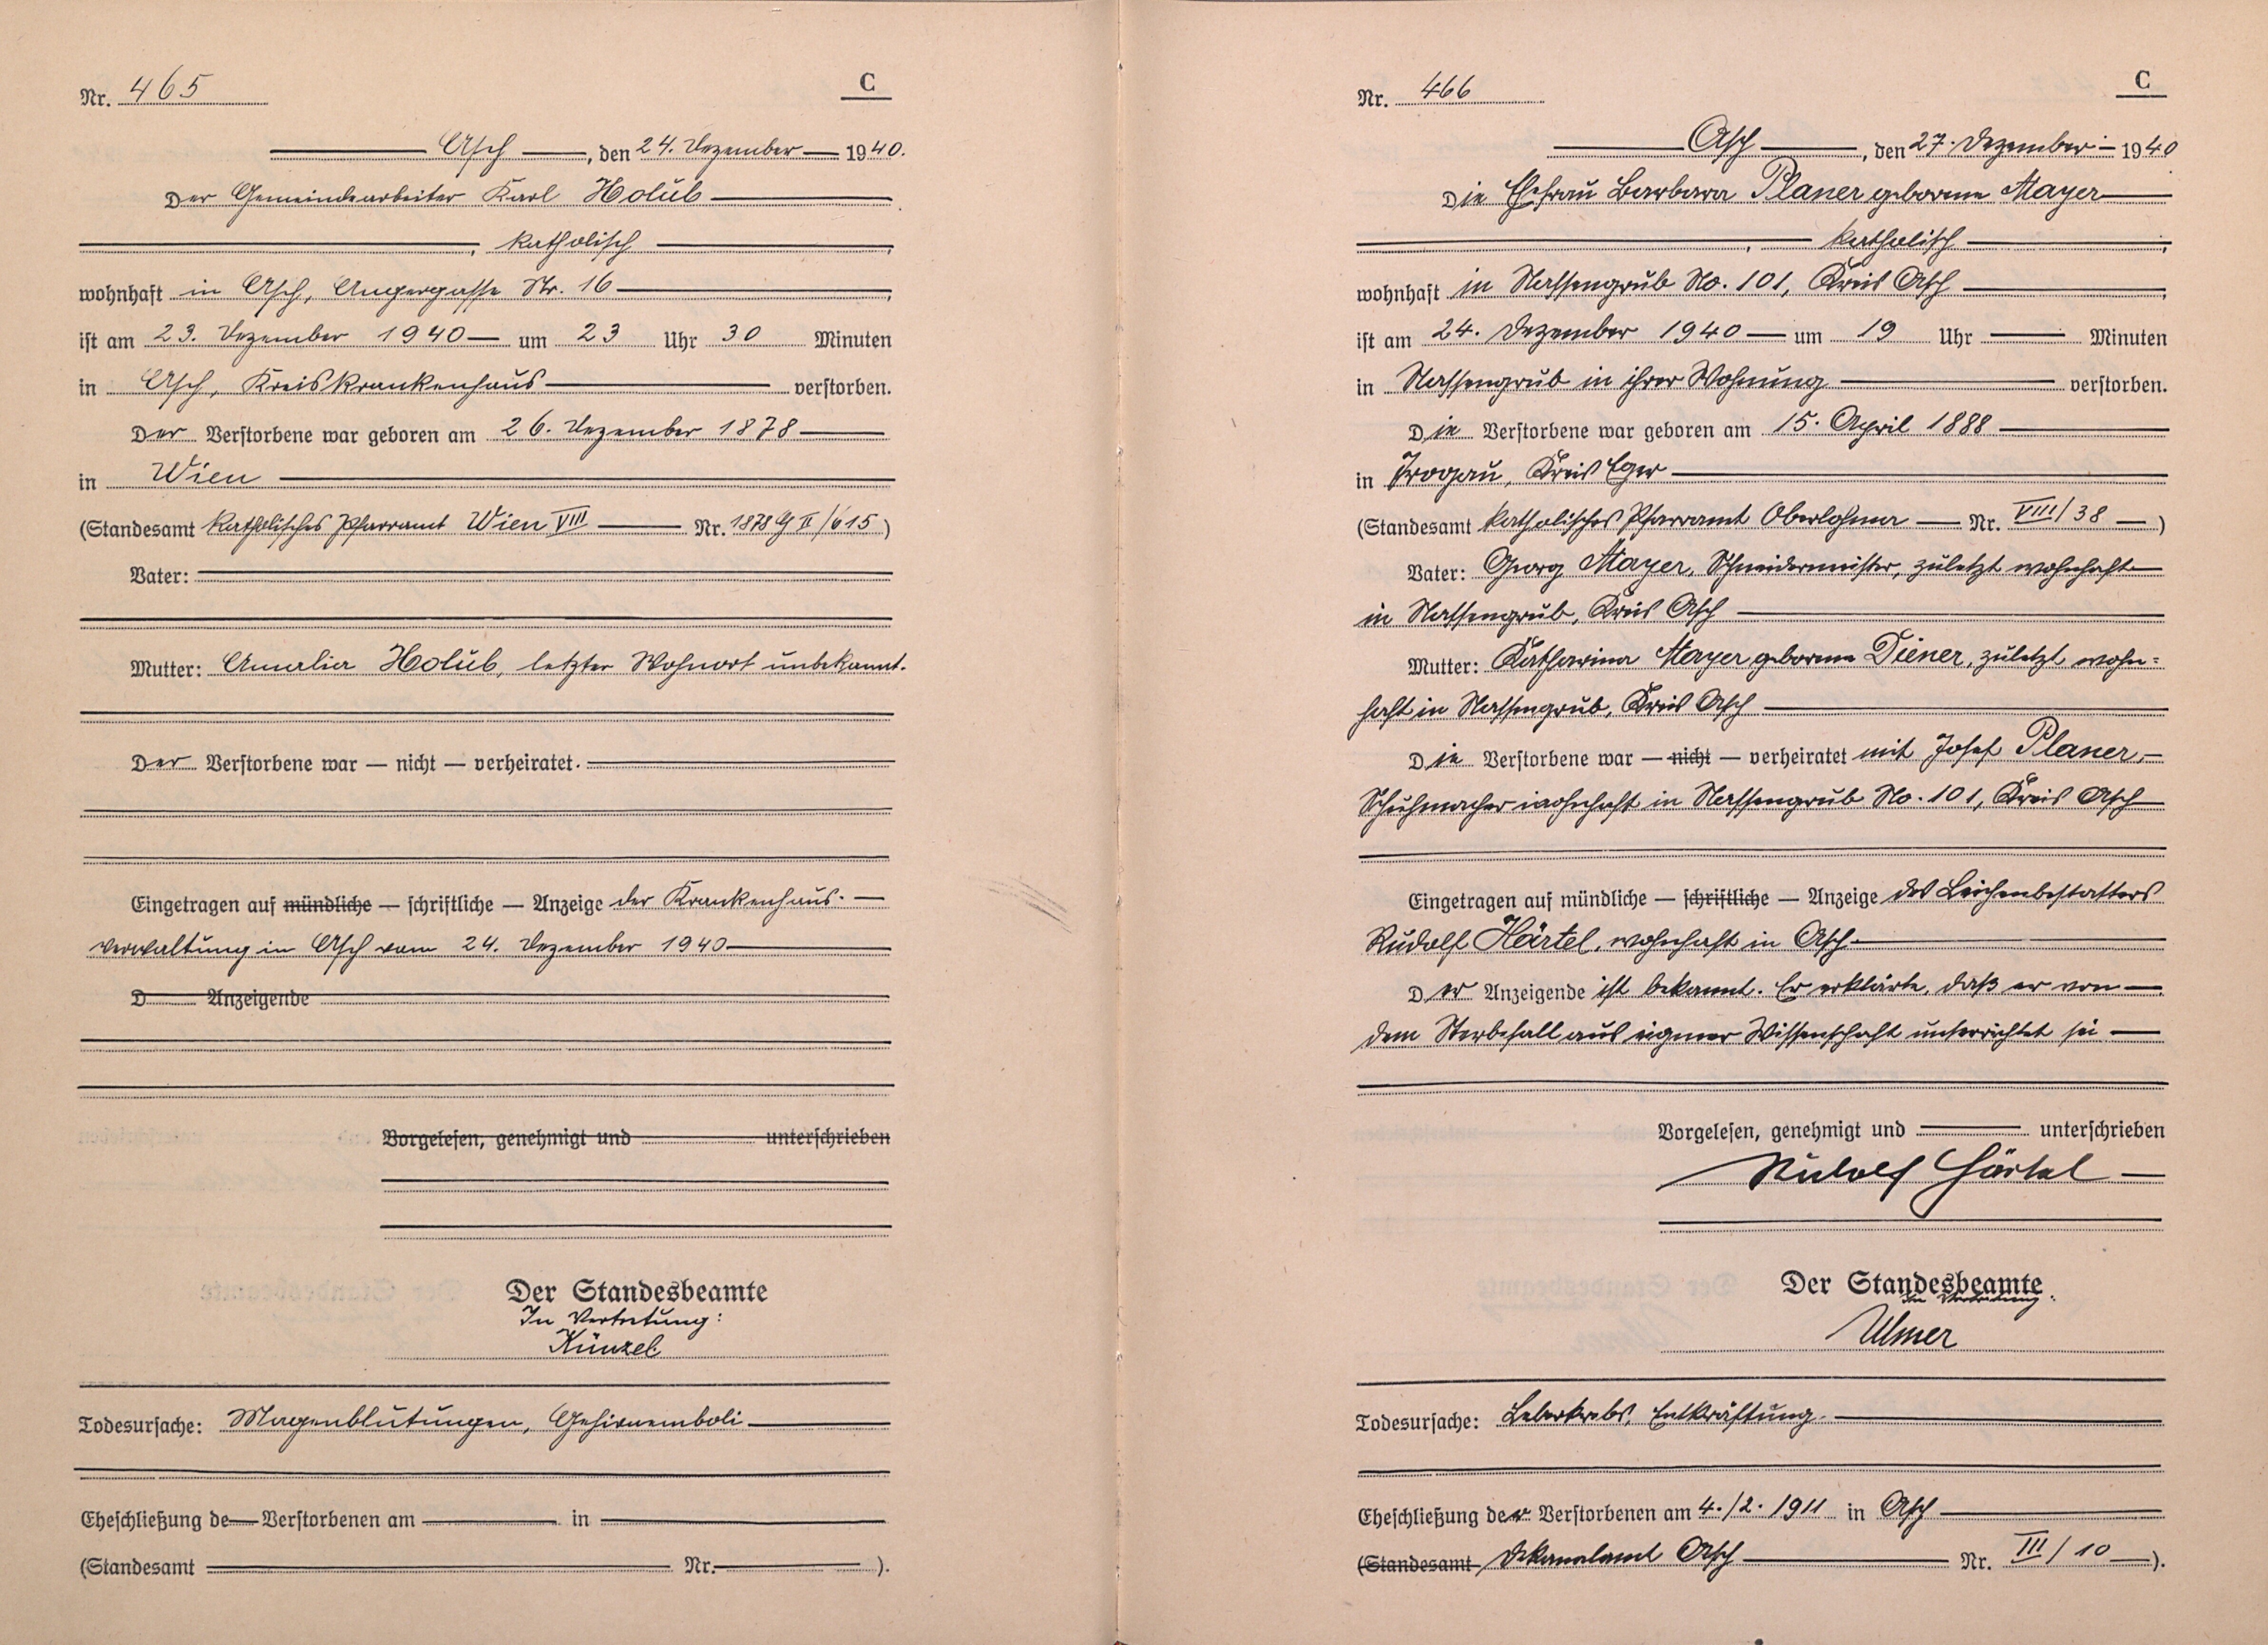 Nr. 465
C
Asch, den 24. Dezember 1940.
Der Gemeindearbeiter Karl Holub
, katholisch,
wohnhaft in Asch, Angergasse Nr. 16,
ist am 23. Dezember 1940 um 23 Uhr 30 Minuten
in Asch, Kreiskrankenhaus verstorben.
Der Verstorbene war geboren am 26. Dezember 1878
in Wien
(Standesamt katholisches Pfarramt Wien VIII Nr. 1878 G II/615)
Vater:
Mutter: Amalia Holub, letzter Wohnort unbekannt.
Der Verstorbene war — nicht — verheiratet.
Eingetragen auf mündliche — schriftliche — Anzeige der Krankenhaus-
verwaltung in Asch vom 24. Dezember 1940
D Anzeigende
Vorgelesen, genehmigt und unterschrieben
Der Standesbeamte
In Vertretung:
Künzel
Todesursache: Magenblutungen, Gehirnemboli
Eheschließung de Verstorbenen am in
(Standesamt Nr. ).
Nr. 466
C
Asch, den 27. Dezember 1940
Die Ehefrau Barbara Planer geborene Mayer
, katholisch,
wohnhaft in Nassengrub No. 101, Kreis Asch,
ist am 24. Dezember 1940 um 19 Uhr — Minuten
in Nassengrub in ihrer Wohnung verstorben.
Die Verstorbene war geboren am 15. April 1888
in Trogau, Kreis Eger
(Standesamt katholisches Pfarramt Oberlohma Nr. VIII/38)
Vater: Georg Mayer, Schneidermeister, zuletzt wohnhaft
in Nassengrub, Kreis Asch
Mutter: Katharina Mayer geborene Diener, zuletzt wohn=
haft in Nassengrub, Kreis Asch
Die Verstorbene war — nicht — verheiratet mit Josef Planer,
Schuhmacher wohnhaft in Nassengrub No. 101, Kreis Asch
Eingetragen auf mündliche — schriftliche — Anzeige des Leichenbestatters
Rudolf Härtel, wohnhaft in Asch.
Der Anzeigende ist bekannt. Er erklärte, daß er von
dem Sterbefall aus eigener Wissenschaft unterrichtet sei
Vorgelesen, genehmigt und unterschrieben
Rudolf Härtel
Der Standesbeamte
In Vertretung:
Ulmer
Todesursache: Leberkrebs, Entkräftung.
Eheschließung der Verstorbenen am 4./2. 1911 in Asch
(Standesamt Dekanalamt Asch Nr. III/10).